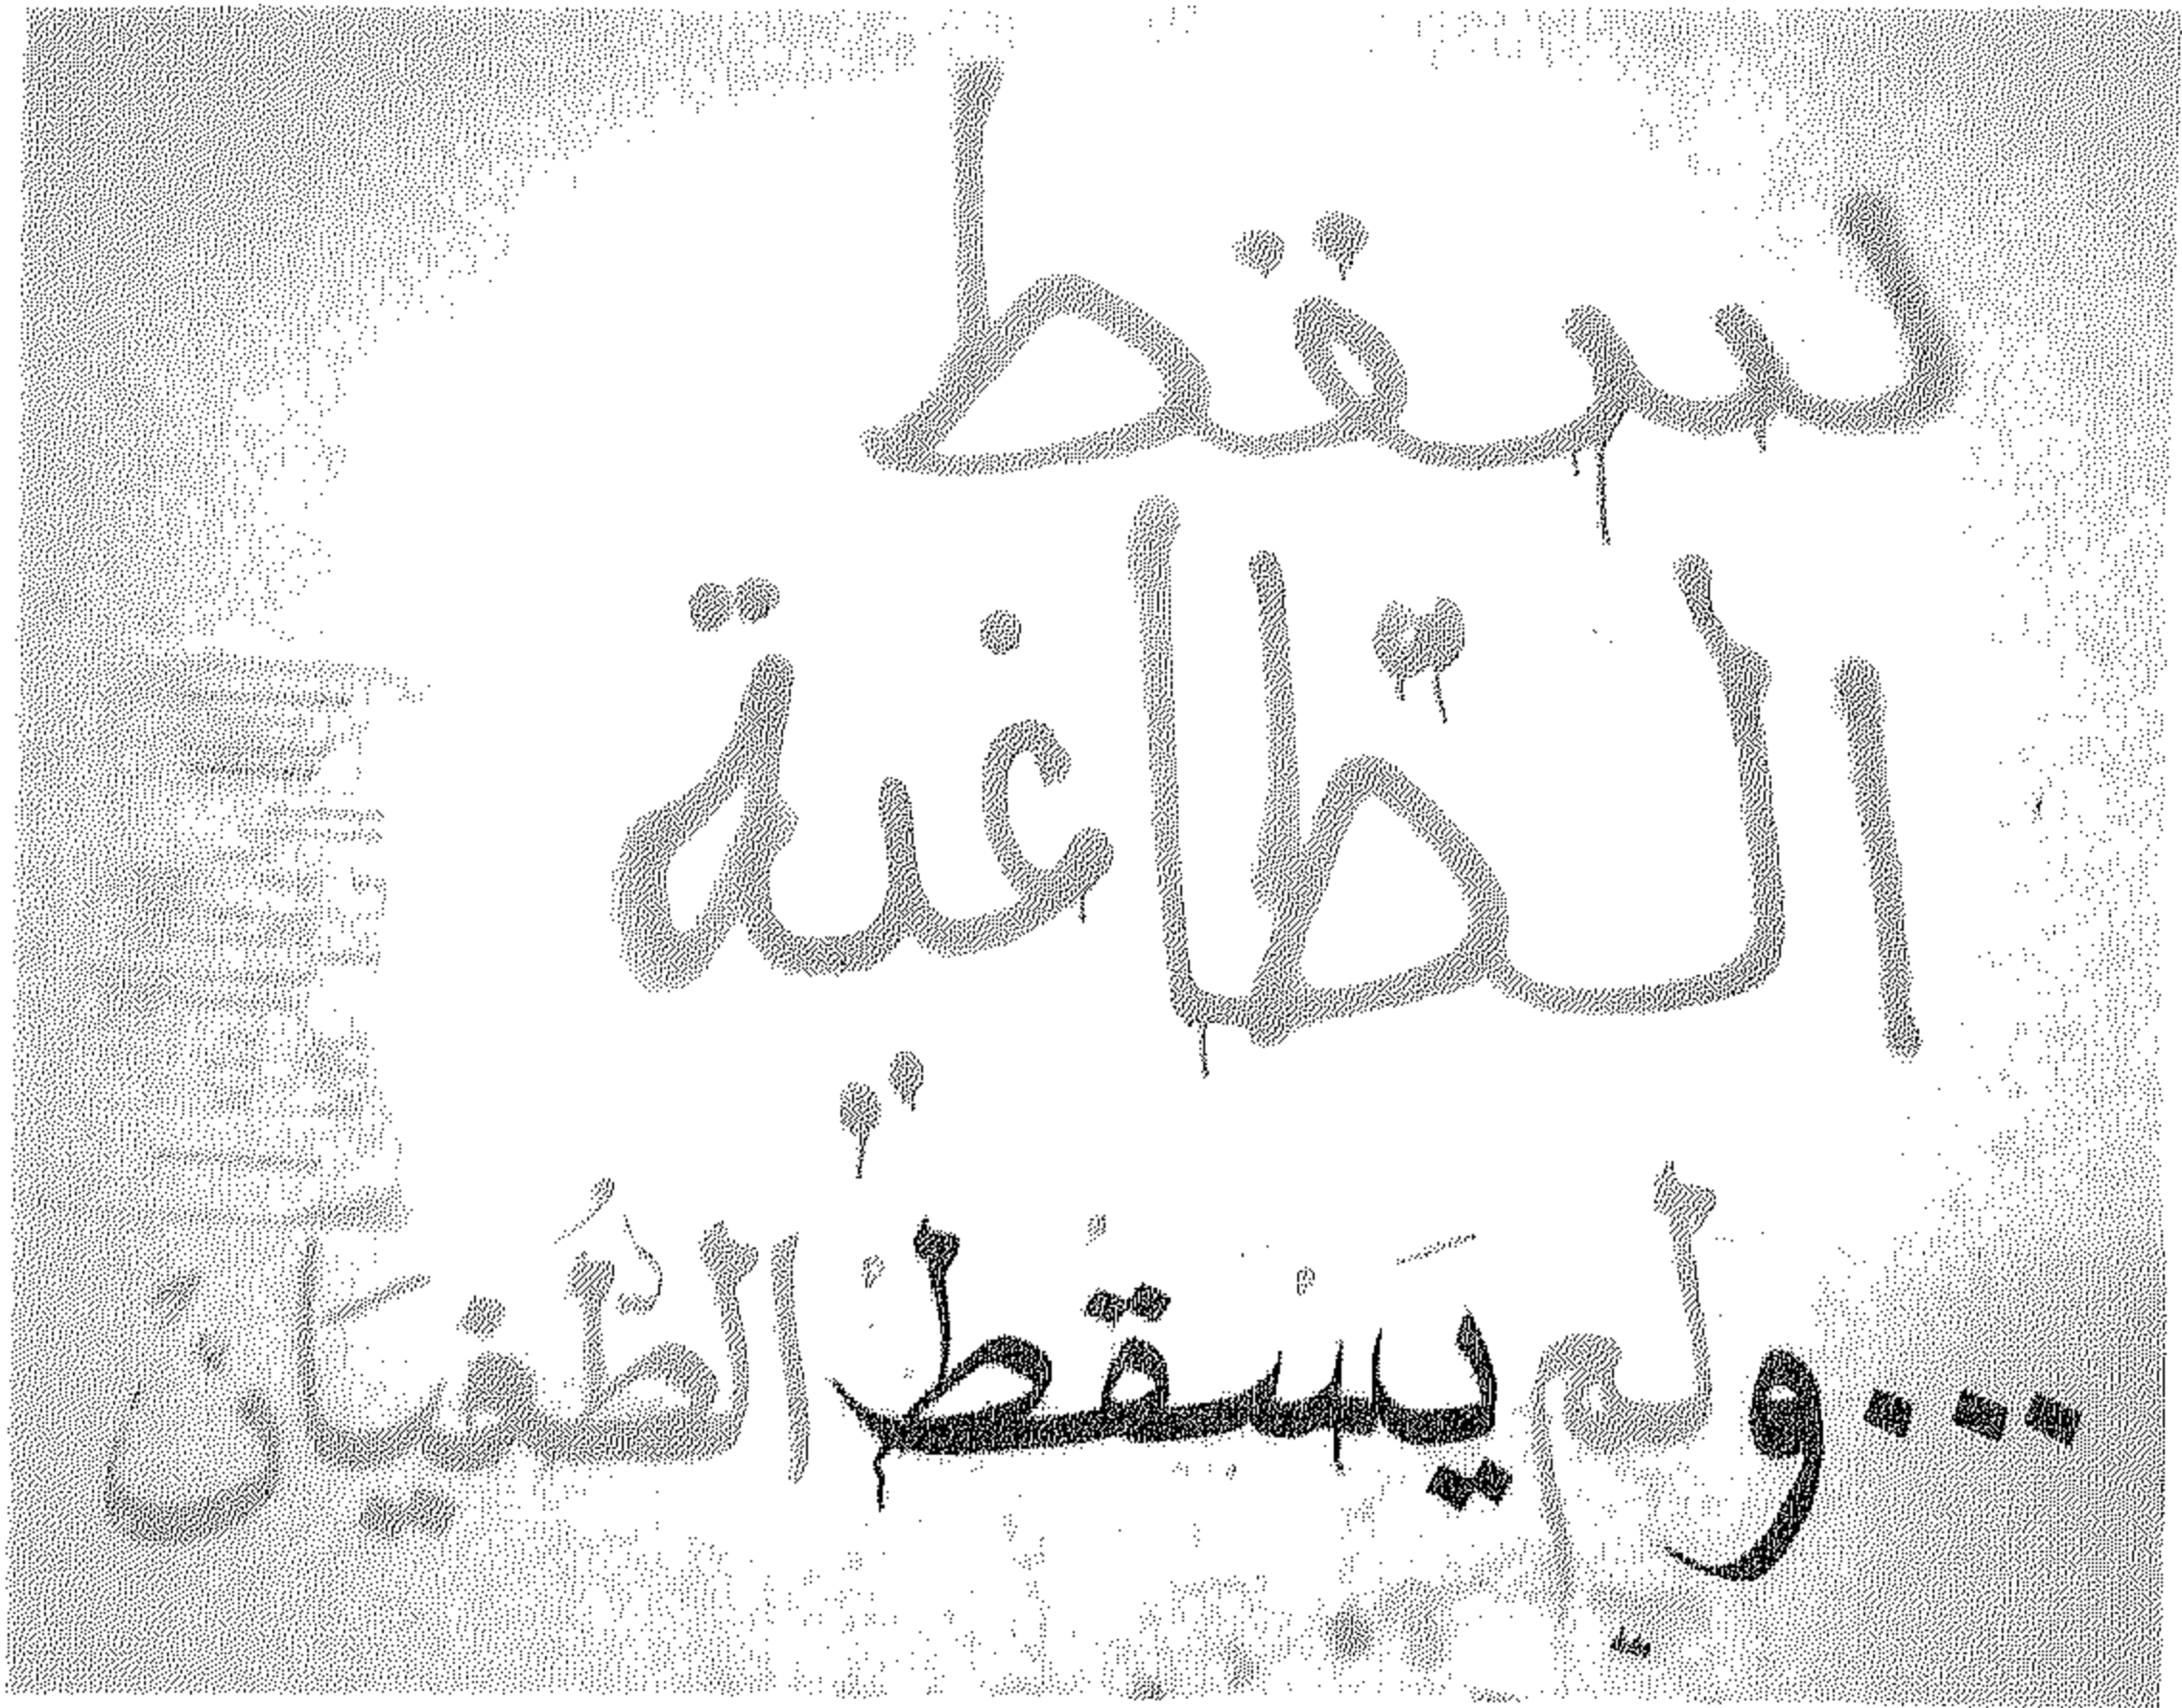 سقط
الطّاغية
...ولم يَسْقُطْ الطُغيَان